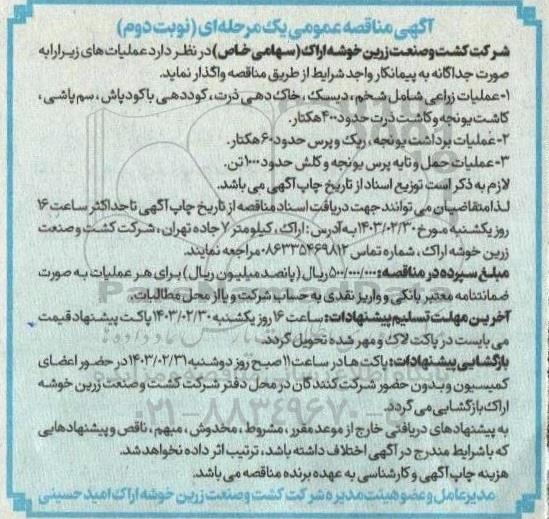 آگهی مناقصه عمومی یک مرحله‌ای (نوبت دوم)
شرکت کشت و صنعت زرین خوشه اراک (سهامی خاص) در نظر دارد عملیات های زیر را به
صورت جداگانه به پیمانکار واجد شرایط از طریق مناقصه واگذار نماید.
۱-عملیات زراعی شامل شخم ، دیسک ، خاک دهی ذرت ، کوددهی با کودپاش ، سم پاشی ،
کاشت یونجه و کاشت ذرت حدود ۴۰۰ هکتار.
۲- عملیات برداشت یونجه ، ریک و پرس حدود ۶۰ هکتار.
۳- عملیات حمل و تایه پرس یونجه و کلش حدود ۱۰۰۰ تن.
لازم به ذکر است توزیع اسناد از تاریخ چاپ آگهی می باشد.
لذا متقاضیان می توانند جهت دریافت اسناد مناقصه از تاریخ چاپ آگهی تا حداکثر ساعت ۱۶
روز یکشنبه مورخ ۱۴۰۳/۰۲/۳۰ به آدرس : اراک ، کیلومتر ۷ جاده تهران ، شرکت کشت و صنعت
زرین خوشه اراک ، شماره تماس ۰۸۶۳۳۵۴۶۹۸۱۲ مراجعه نمایند.
مبلغ سپرده در مناقصه : ۵۰۰/۰۰۰/۰۰۰ ریال (پانصد میلیون ریال) برای هر عملیات به صورت
ضمانتنامه معتبر بانکی و واریز نقدی به حساب شرکت و یا از محل مطالبات.
آخرین مهلت تسلیم پیشنهادات : ساعت ۱۶ روز یکشنبه ۱۴۰۳/۰۲/۳۰ پاکت پیشنهاد قیمت
می بایست در پاکت لاک و مهر شده تحویل گردد.
بازگشایی پیشنهادات : پاکت ها در ساعت ۱۱ صبح روز دوشنبه ۱۴۰۳/۰۲/۳۱ در حضور اعضای
کمیسیون و بدون حضور شرکت کنندگان در محل دفتر شرکت کشت و صنعت زرین خوشه
اراک بازگشایی می گردد.
به پیشنهادهای دریافتی خارج از موعد مقرر ، مشروط ، مخدوش ، مبهم ، ناقص و پیشنهادهایی
که با شرایط مندرج در آگهی اختلاف داشته باشد ، ترتیب اثر داده نخواهد شد.
هزینه چاپ آگهی و کارشناسی به عهده برنده مناقصه می باشد.
مدیرعامل و عضو هیئت مدیره شرکت کشت و صنعت زرین خوشه اراک امید حسینی
۰۲۱-۸۸۳۴۹۶۷۰